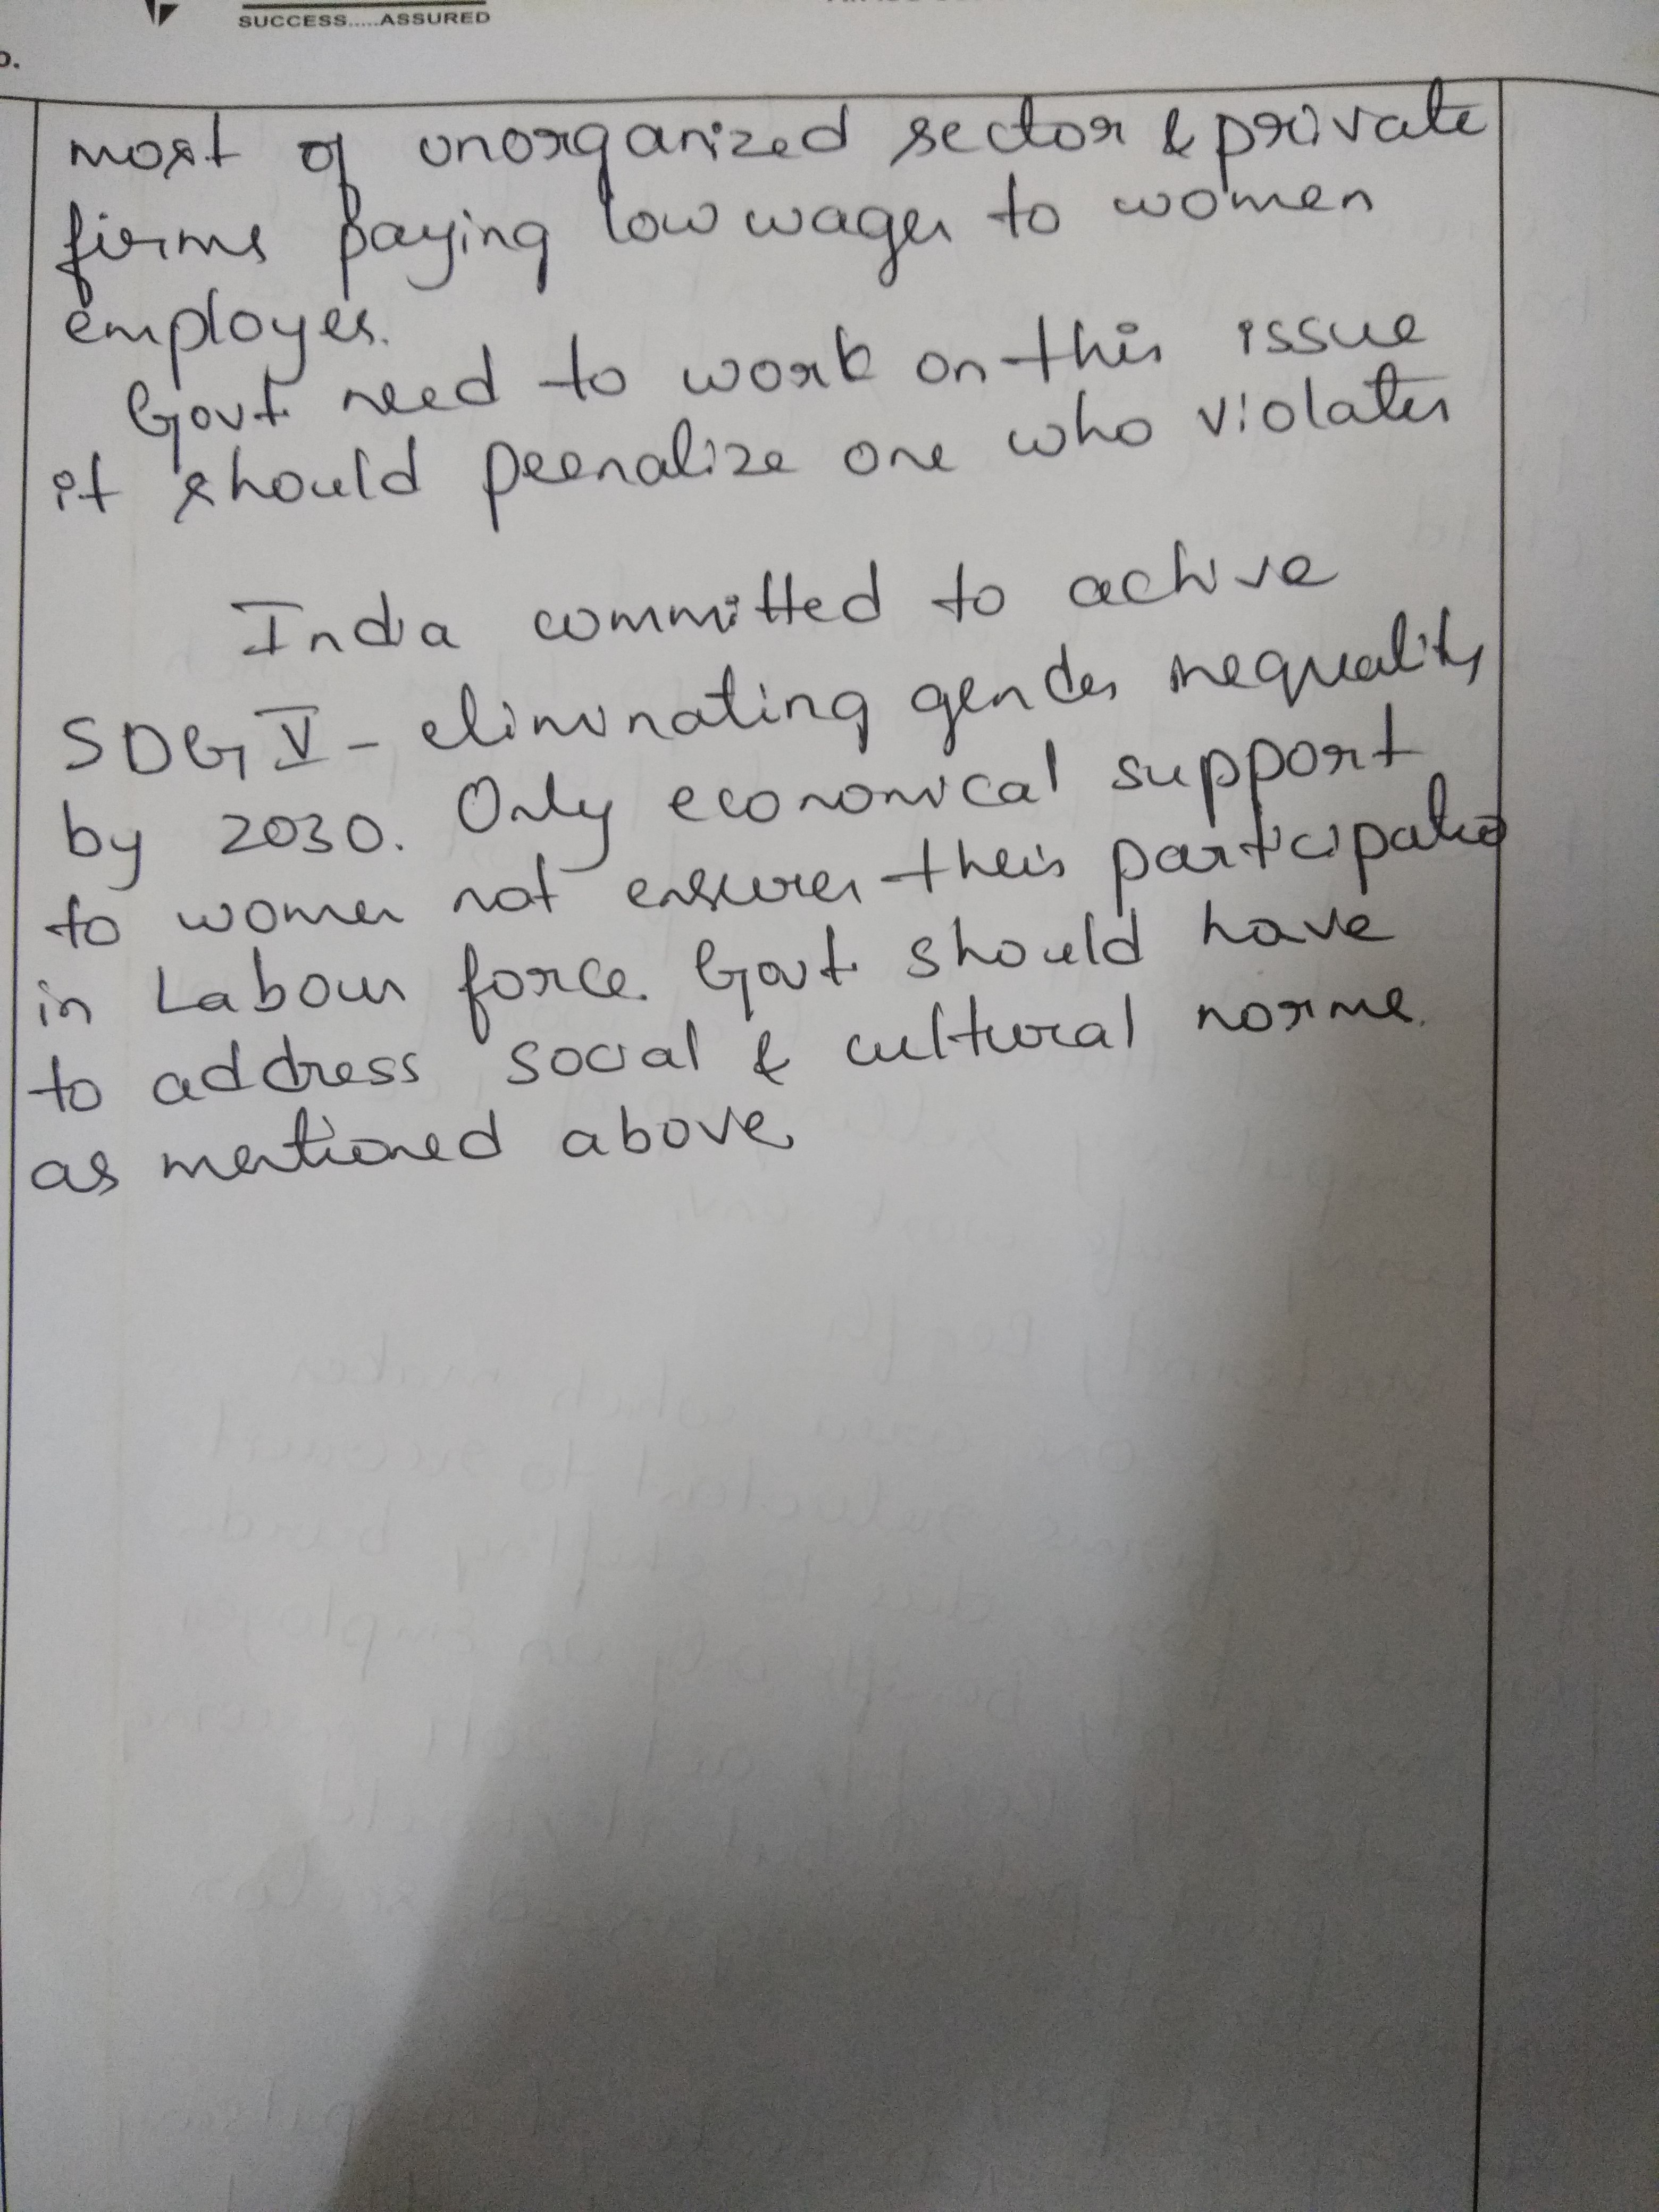 SUCCESS.....ASSURED
most of unorganized sector & private
firms paying low wages to women
employes.
Govt need to work on this issue
it should peenalize one who violates
India committed to achive
SDG V - eliminating gender inequality
by 2030. Only economical support
to women not ensures their participatio
in Labour force. Govt should have
to address social & cultural norms.
as mentioned above